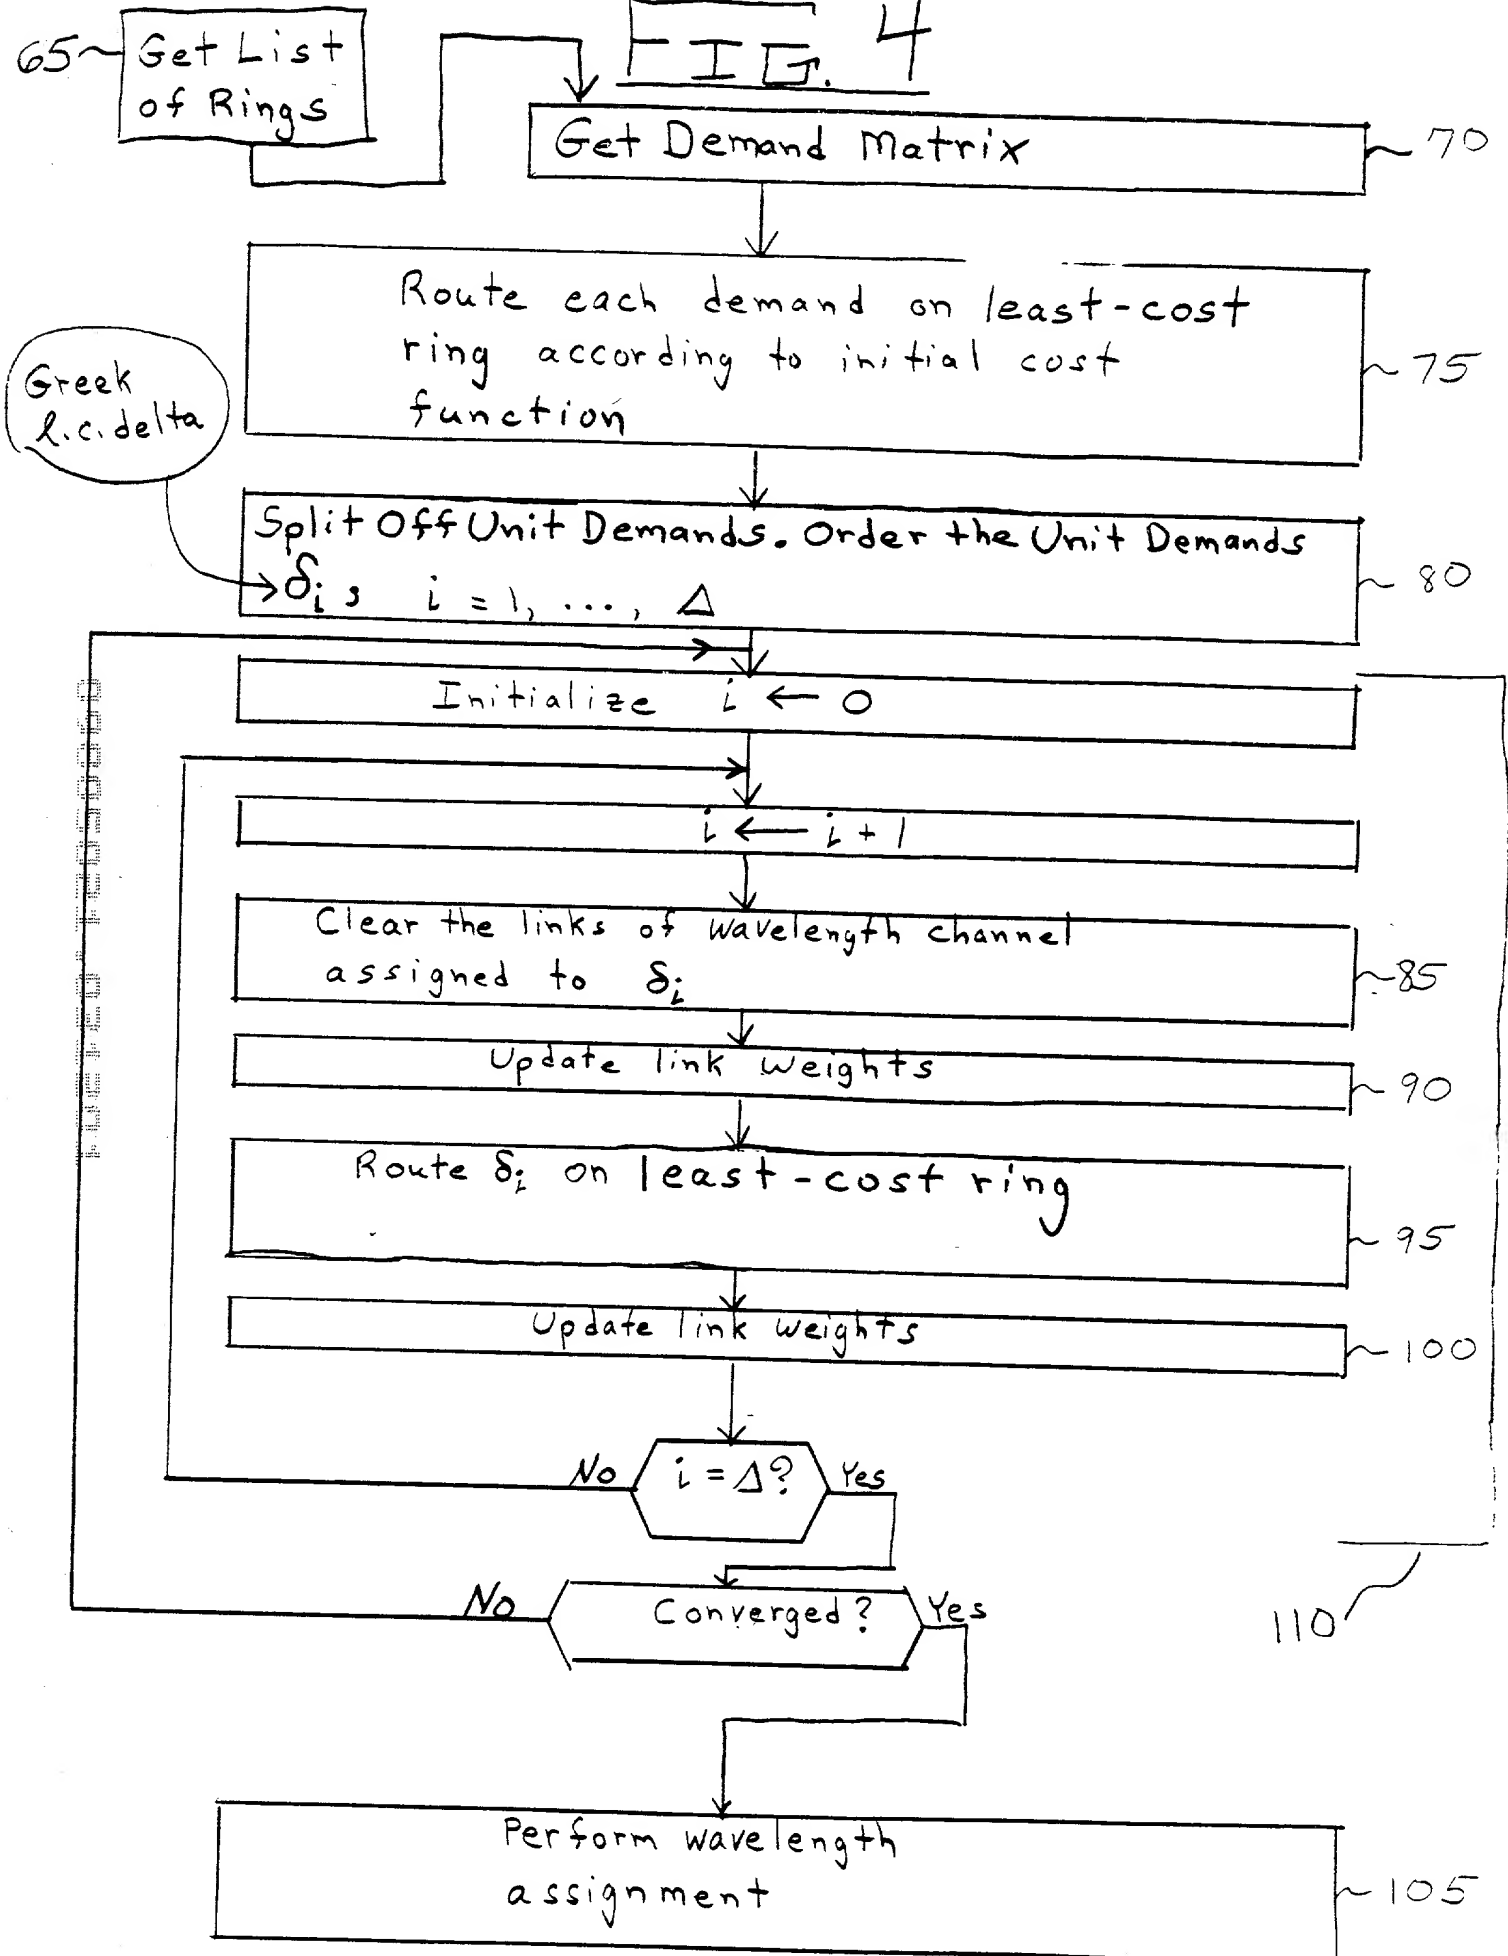 FIG. 4
65
Get List
of Rings
Get Demand Matrix
70
Route each demand on least-cost
ring according to initial cost
function
75
Greek
l.c. delta
Split Off Unit Demands. Order the Unit Demands
δᵢ, i = 1, ..., Δ
80
Initialize i ← 0
i ← i + 1
Clear the links of wavelength channel
assigned to δᵢ
85
Update link weights
90
Route δᵢ on least-cost ring
95
Update link weights
100
No
i = Δ?
Yes
No
Converged?
Yes
110
Perform wavelength
assignment
105